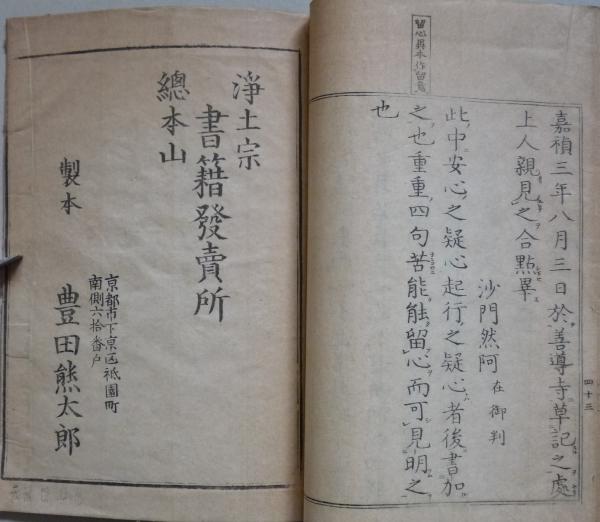 留心異本作留意
嘉禎三年八月三日於善導寺草記之處
上人親見之合點畢
沙門然阿 在御判
此中安心之疑心起行之疑心者後書加
之也重重四句苦能能留心而可見明之
也
四十三
淨土宗
總本山
書籍發賣所
京都市下京區祇園町
南側六拾番戶
製本 豊田熊太郎